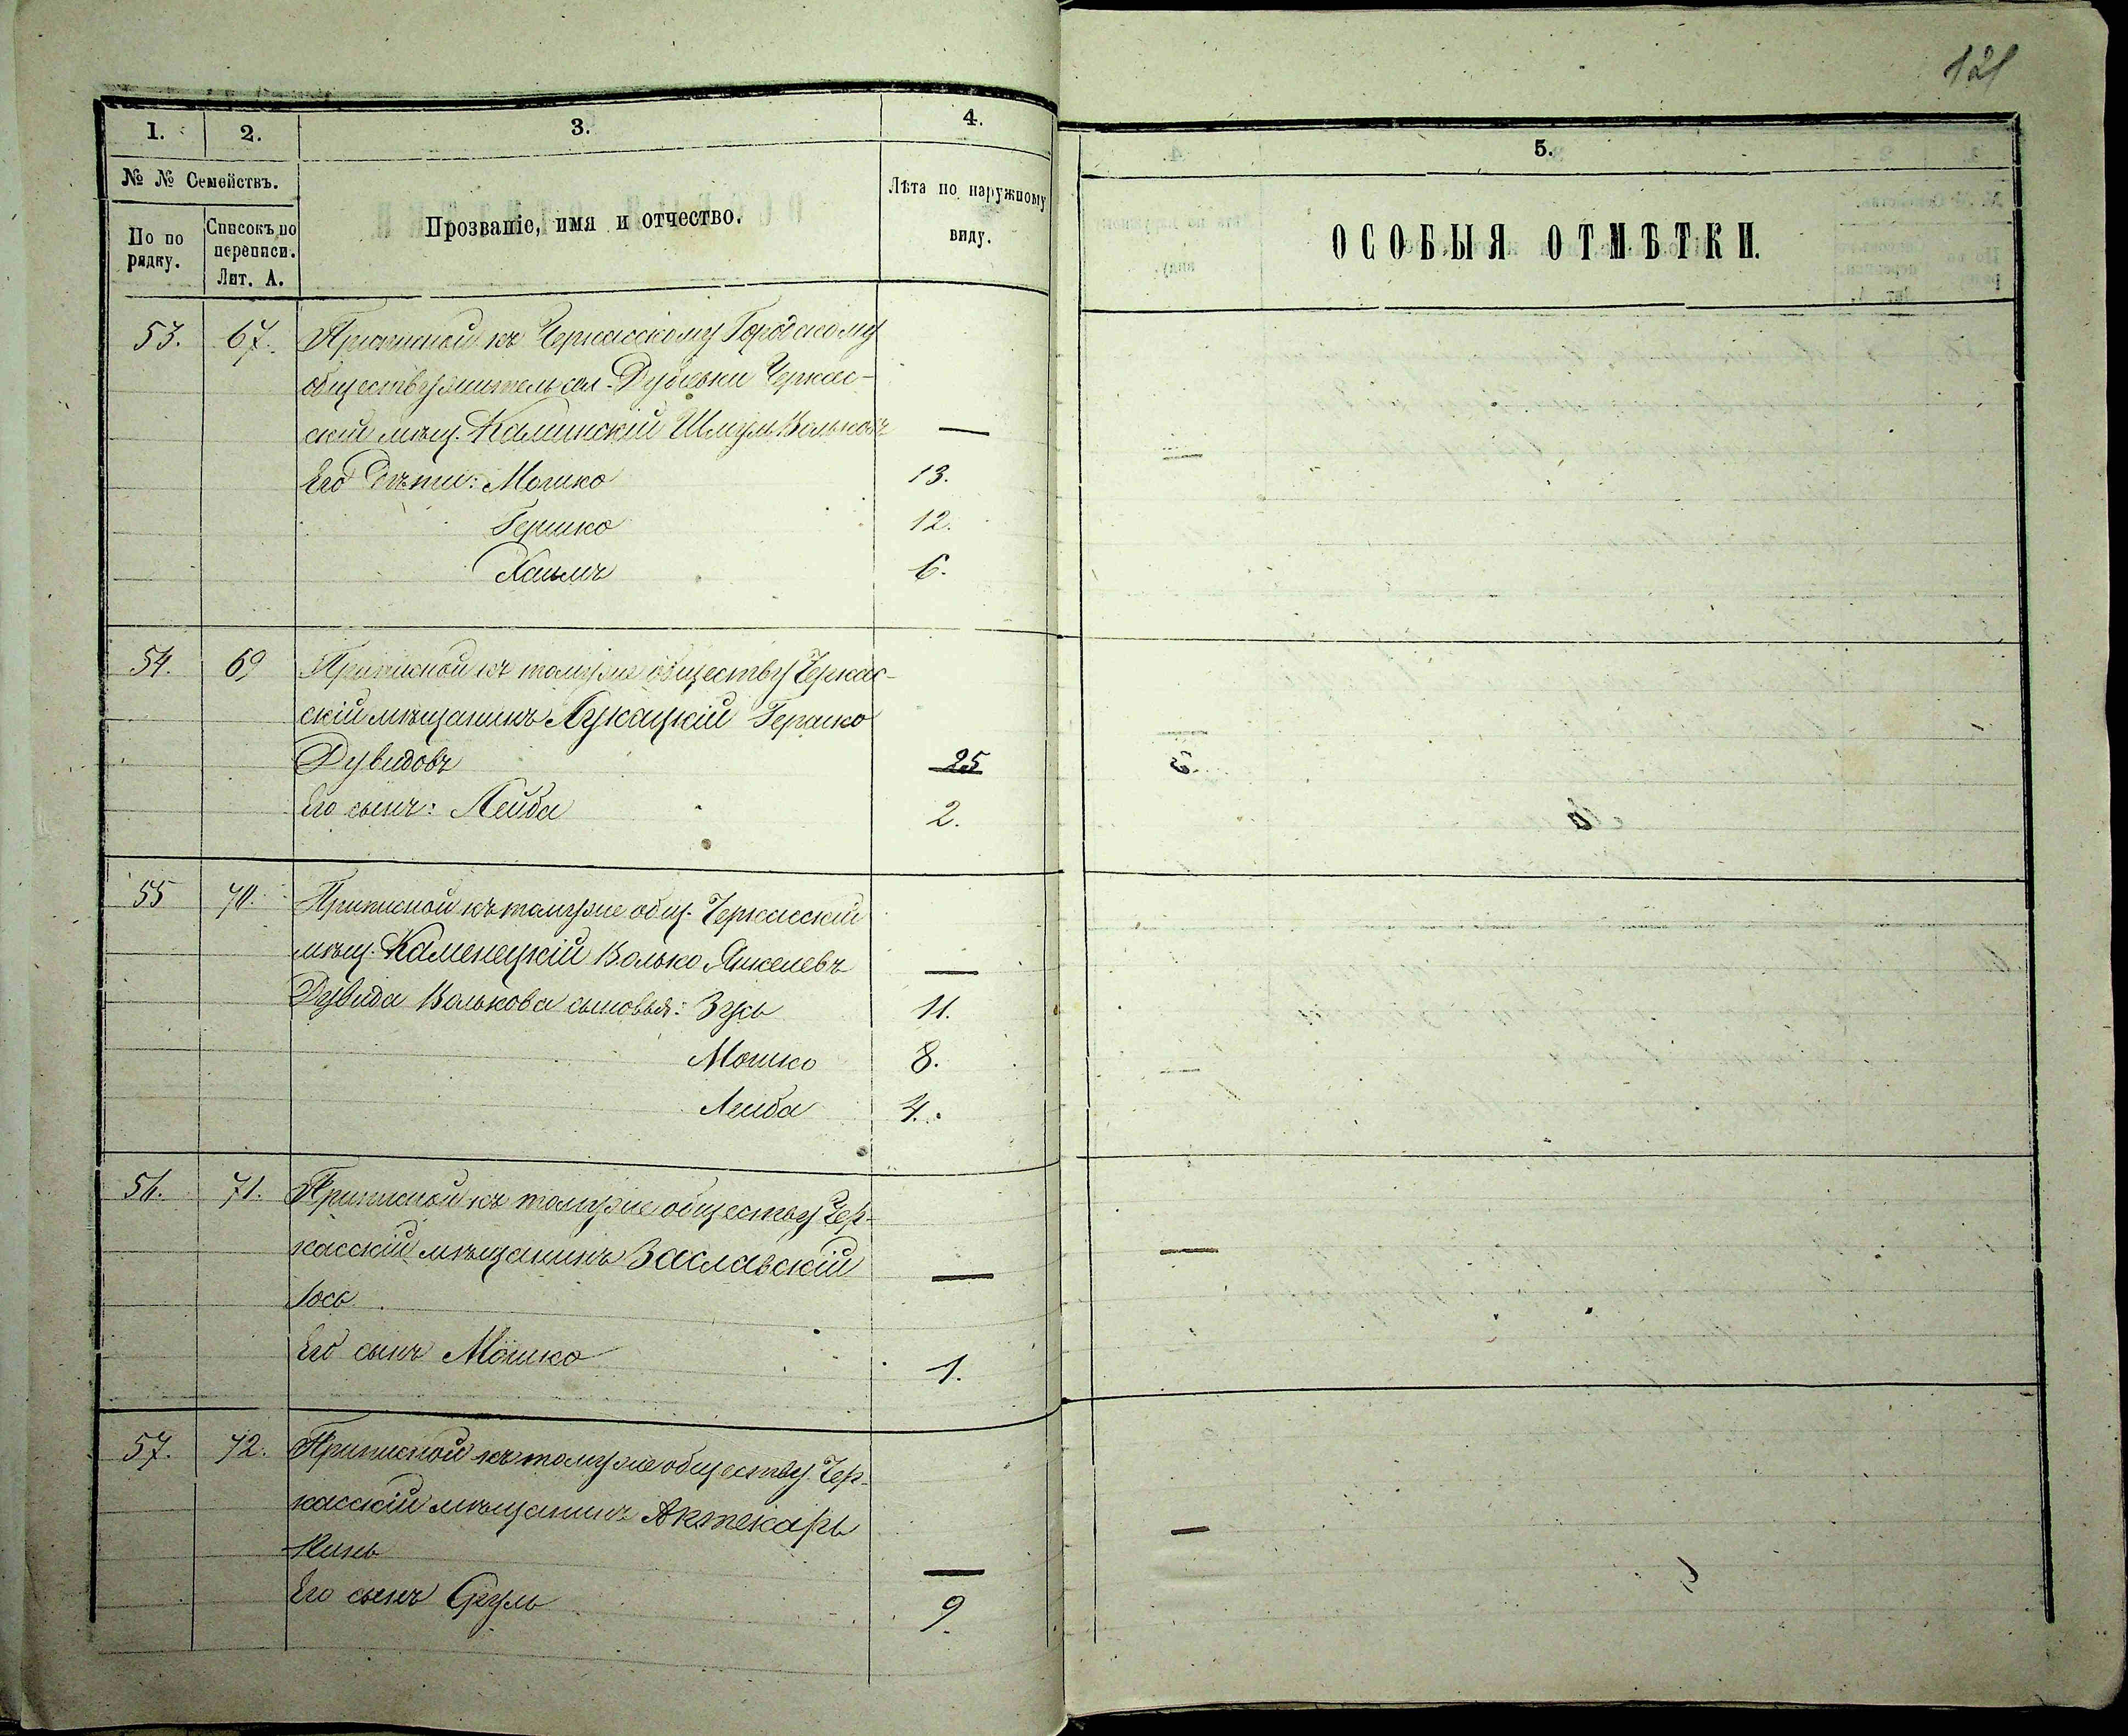 121
1. 2. 3. 4.
№ № Семействъ.
По по рядку.
Списокъ по переписи. Лит. А.
Прозваніе, имя и отчество.
Лѣта по наружному виду.
5.
ОСОБЫЯ ОТМѢТКИ.
53. 67. Приписной къ Черкасскому Городскому
обществу житель сел. Дубіевки Черкас-
скій мѣщ. Каминскій Шмуль Вольковъ —
Его дѣти: Мошко 13.
Гершко 12.
Хаимъ 6.
54. 69 Приписной къ томуже обществу Черкас-
скій мѣщанинъ Лукацкій Гершко
Дувидовъ 25
Его сынъ: Лейба 2.
55 70. Приписной къ томуже общ. Черкасскій
мѣщ. Каменецкій Волько Янкелевъ —
Дувида Волькова сыновья: Зусь 11.
Мошко 8.
Лейба 4.
56. 71. Приписной къ томуже обществу Чер-
касскій мѣщанинъ Заславскій —
Іось
Его сынъ Мошко 1.
57. 72. Приписной къ томуже обществу Чер-
касскій мѣщанинъ Актекарь
—
Его сынъ Сруль 9.